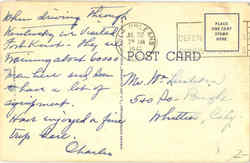 When driving through
Kentucky we visited
Fort Knox - they are
training about 60000
men here and seem
to have a lot of
equipment.
Have enjoyed a fine
trip here.
Charles
POST CARD
PLACE
ONE CENT
STAMP
HERE
Mrs. W.
540 So.
Whittier, Calif